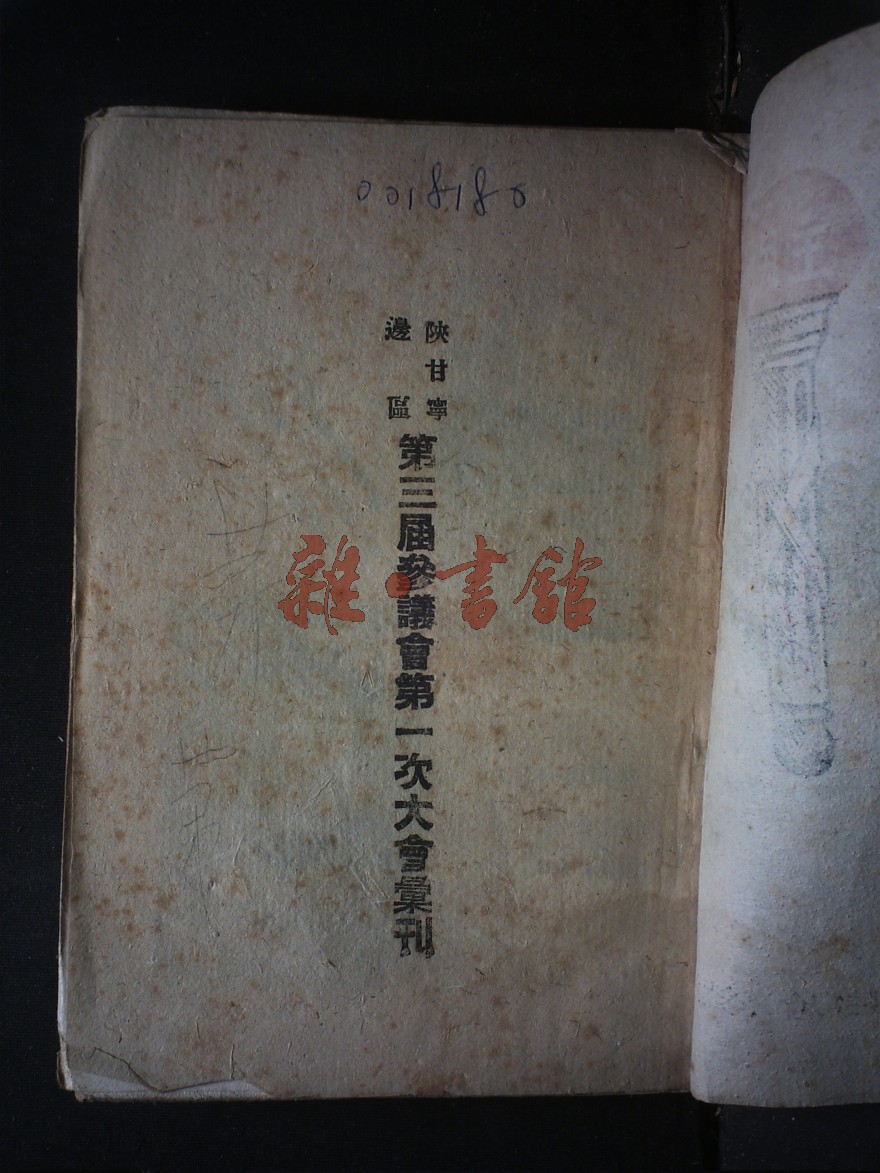 0018180
陝甘寧
邊區
第三屆參議會第一次大會彙刊
雜·書館